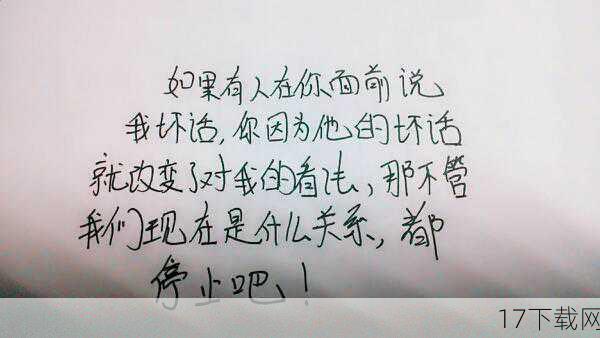 如果有人在你面前说
我坏话,你因为他的坏话
就改变了对我的看法,那不管
我们现在是什么关系,都
停止吧!
17下载网